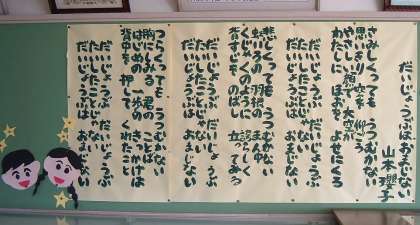 だいじょうぶはおまじない
山本瓔子
さみしくっても うつむかない
思いきり 空を 仰ごう
やさしい 絹で 大気が
ほおを よせにくる
だいじょうぶ だいじょうぶ
たいしたことじゃない
だいじょうぶは おまじない
悲しくっても うつむかない
虹いろの 羽根の まん中
くじゃくのように 誇らしく
背すじを のばし 立ってみる
だいじょうぶ だいじょうぶ
たいしたことじゃない
だいじょうぶは おまじない
つらくっても うつむかない
胸にしみる 君の ことば
はじめの 一歩の きっかけは
背中を 押して くれたこと
だいじょうぶ だいじょうぶ
たいしたことじゃない
だいじょうぶは おまじない